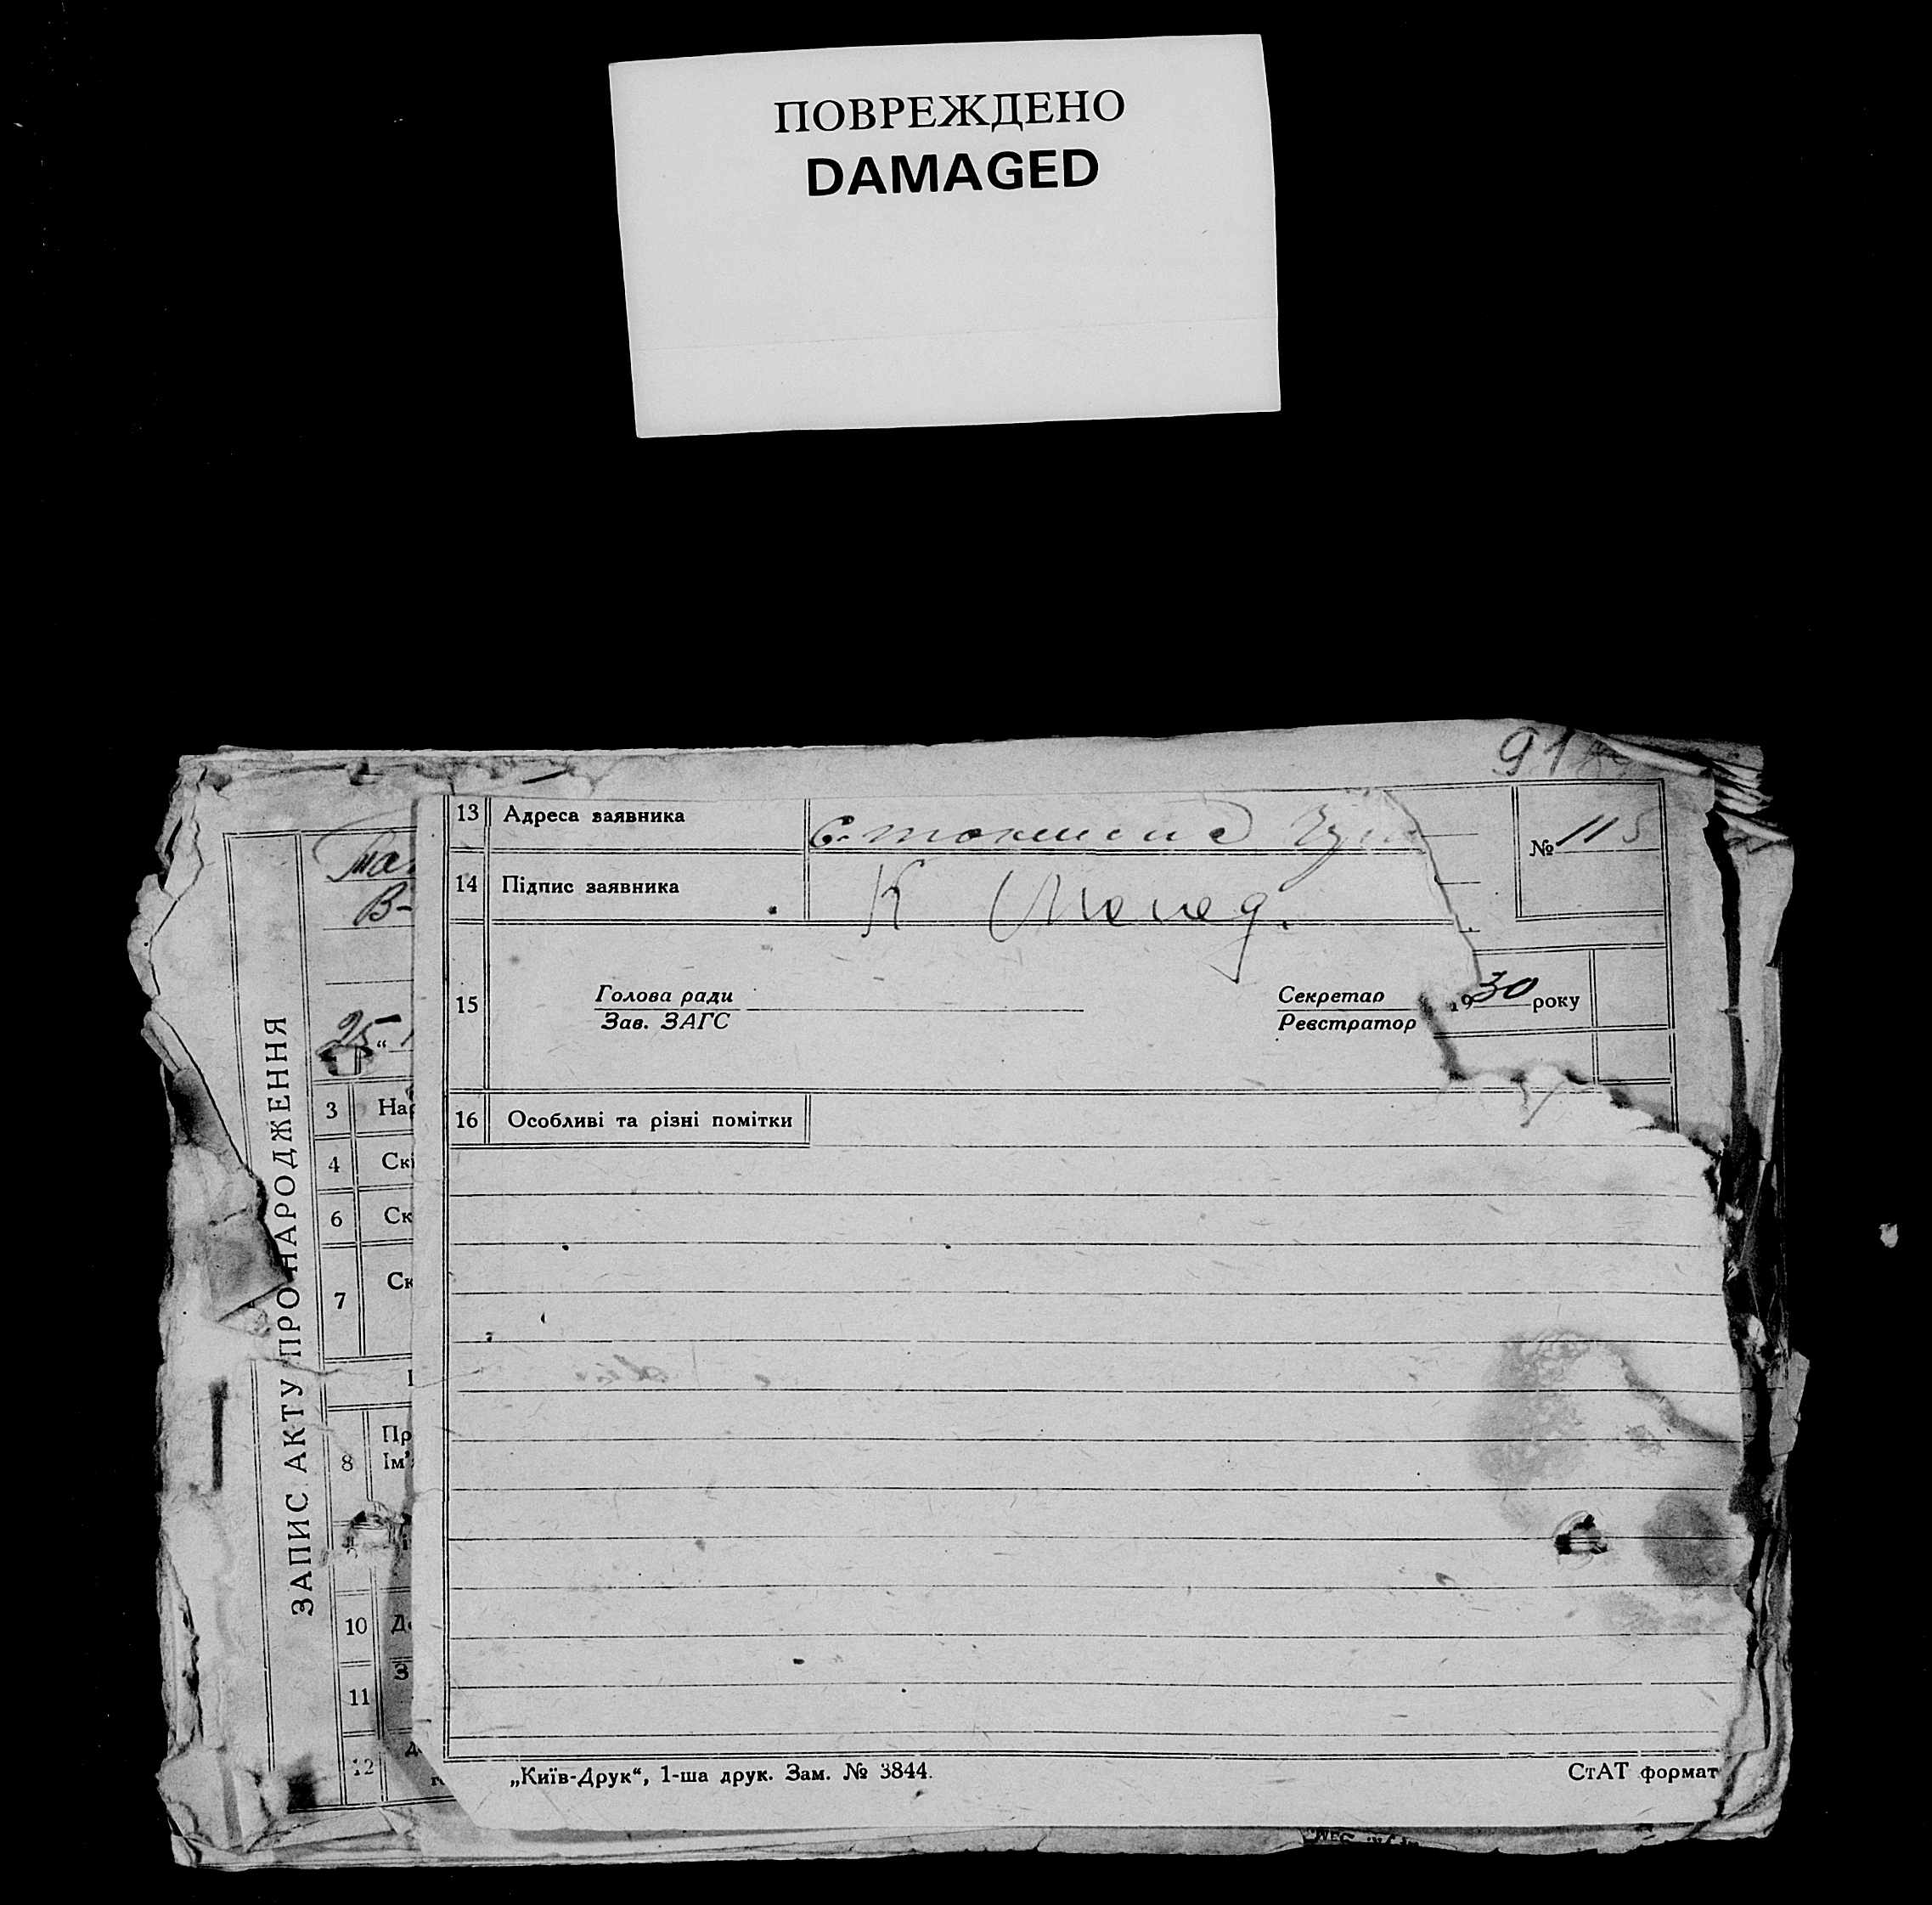 ПОВРЕЖДЕНО
DAMAGED
91
13 Адреса заявника
№ 115
14 Підпис заявника К
15 Голова ради Секретар 1930 року
Зав. ЗАГС Реєстратор
16 Особливі та різні помітки
ЗАПИС АКТУ ПРО НАРОДЖЕННЯ
В-
25 "
3 Нар
4 Скі
6 Ск
7 Ск
8 Пр
Ім'
10
11 З
12
„Київ-Друк“, 1-ша друк. Зам. № 3844.
СтАТ формат